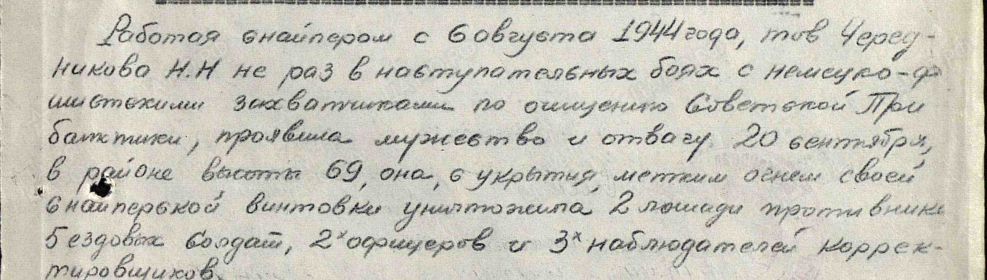 Работая снайпером с 6 августа 1944 года, тов Черед-
никова Н.Н не раз в наступательных боях с немецко-фа
шистскими захватчиками по очищению Советской При
балктики, проявила мужество и отвагу. 20 сентября,
в районе высоты 69, она, с укрытия, метким огнем своей
снайперской винтовки уничтожила 2 лошади противника
5 ездовых солдат, 2х офицеров и 3х наблюдателей коррек-
тировщиков.